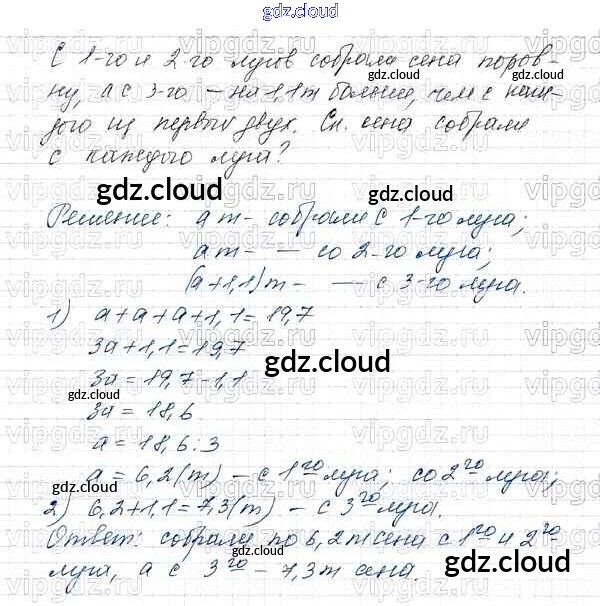 gdz.cloud
С 1-го и 2-го лугов собрали сена поров-
ну, а с 3-го – на 1,1т больше, чем с каж-
дого из первых двух. Ск. сена собрали
с каждого луга?
Решение: а т – собрали с 1-го луга;
а т – — со 2-го луга;
(а+1,1)т – — с 3-го луга.
1) а+а+а+1,1=19,7
3а+1,1=19,7
3а=19,7-1,1
3а=18,6
а=18,6:3
а=6,2(т) – с 1го луга; со 2го луга;
2) 6,2+1,1=7,3(т) – с 3го луга.
Ответ: собрали по 6,2т сена с 1го и 2го
луга, а с 3го – 7,3т сена.